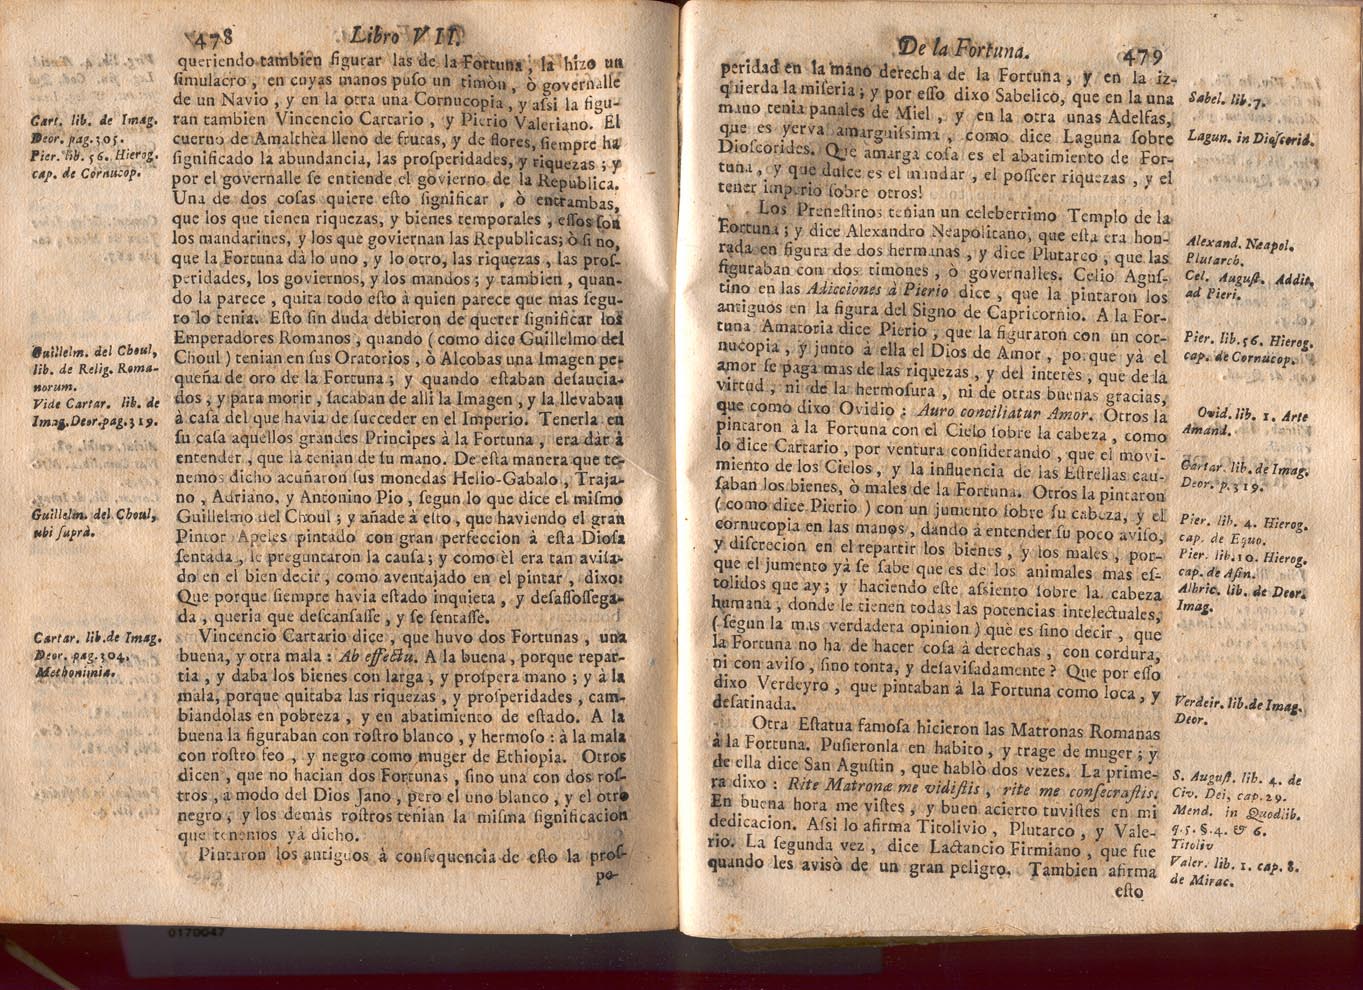 478 Libro VII.
queriendo tambien figurar las de la Fortuna, la hizo un
simulacro, en cuyas manos puso un timòn, ò governalle
de un Navio, y en la otra una Cornucopia, y assi la figu-
ran tambien Vincencio Cartario, y Pierio Valeriano. El
cuerno de Amalthea lleno de frutas, y de flores, siempre ha
significado la abundancia, las prosperidades, y riquezas; y
por el governalle se entiende el govierno de la Republica.
Una de dos cosas quiere esto significar, ò entrambas,
que los que tienen riquezas, y bienes temporales, essos son
los mandarines, y los que goviernan las Republicas; ò si no,
que la Fortuna dà lo uno, y lo otro, las riquezas, las pros-
peridades, los goviernos, y los mandos; y tambien, quan-
do la parece, quita todo esto à quien parece que mas segu-
ro lo tenia. Esto sin duda debieron de querer significar los
Emperadores Romanos, quando (como dice Guillelmo del
Choul) tenian en sus Oratorios, ò Alcobas una Imagen pe-
queña de oro de la Fortuna; y quando estaban desaucia-
dos, y para morir, sacaban de alli la Imagen, y la llevaban
à casa del que havia de succeder en el Imperio. Tenerla en
su casa aquellos grandes Principes à la Fortuna, era dàr à
entender, que la tenian de su mano. De esta manera que te-
nemos dicho acuñaron sus monedas Helio-Gabalo, Traja-
no, Adriano, y Antonino Pio, segun lo que dice el mismo
Guillelmo del Choul; y añade à esto, que haviendo el gran
Pintor Apeles pintado con gran perfeccion à esta Diosa
sentada, le preguntaron la causa; y como èl era tan avisa-
do en el bien decir, como aventajado en el pintar, dixo:
Que porque siempre havia estado inquieta, y desassossega-
da, queria que descansasse, y se sentasse.
Vincencio Cartario dice, que huvo dos Fortunas, una
buena, y otra mala: Ab effectu. A la buena, porque repar-
tia, y daba los bienes con larga, y prospera mano; y à la
mala, porque quitaba las riquezas, y prosperidades, cam-
biandolas en pobreza, y en abatimiento de estado. A la
buena la figuraban con rostro blanco, y hermoso: à la mala
con rostro feo, y negro como muger de Ethiopia. Otros
dicen, que no hacian dos Fortunas, sino una con dos ros-
tros, à modo del Dios Jano, pero el uno blanco, y el otro
negro, y los demàs rostros tenian la misma significacion
que tenemos yà dicho.
Pintaron los antiguos à consequencia de esto la pros-
pe-
Cart. lib. de Imag.
Deor. pag. 305.
Pier. lib. 56. Hierog.
cap. de Cornucop.
Guillelm. del Choul,
lib. de Relig. Roma-
norum.
Vide Cartar. lib. de
Imag. Deor. pag. 319.
Guillelm. del Choul,
ubi suprà.
Cartar. lib. de Imag.
Deor. pag. 304.
Methonimia.
De la Fortuna. 479
peridad en la mano derecha de la Fortuna, y en la iz-
quierda la miseria; y por esso dixo Sabelico, que en la una
mano tenia panales de Miel, y en la otra unas Adelfas,
que es yerva amarguissima, como dice Laguna sobre
Dioscorides. Què amarga cosa es el abatimiento de For-
tuna, y què dulce es el mandar, el posseer riquezas, y el
tener imperio sobre otros!
Los Prenestinos tenian un celeberrimo Templo de la
Fortuna; y dice Alexandro Neapolitano, que esta era hon-
rada en figura de dos hermanas, y dice Plutarco, que las
figuraban con dos timones, ò governalles. Celio Agus-
tino en las Adicciones à Pierio dice, que la pintaron los
antiguos en la figura del Signo de Capricornio. A la For-
tuna Amatoria dice Pierio, que la figuraron con un cor-
nucopia, y junto à ella el Dios de Amor, porque yà el
amor se paga mas de las riquezas, y del interès, que de la
virtud, ni de la hermosura, ni de otras buenas gracias,
que como dixo Ovidio: Auro conciliatur Amor. Otros la
pintaron à la Fortuna con el Cielo sobre la cabeza, como
lo dice Cartario, por ventura considerando, que el movi-
miento de los Cielos, y la influencia de las Estrellas cau-
saban los bienes, ò males de la Fortuna. Otros la pintaron
(como dice Pierio) con un jumento sobre su cabeza, y el
cornucopia en las manos, dando à entender su poco aviso,
y discrecion en el repartir los bienes, y los males, por-
que el jumento yà se sabe que es de los animales mas es-
tolidos que ay; y haciendo este assiento sobre la cabeza
humana, donde le tienen todas las potencias intelectuales,
(segun la mas verdadera opinion) què es sino decir, que
la Fortuna no ha de hacer cosa à derechas, con cordura,
ni con aviso, sino tonta, y desavisadamente? Que por esso
dixo Verdeyro, que pintaban à la Fortuna como loca, y
desatinada.
Otra Estatua famosa hicieron las Matronas Romanas
à la Fortuna. Pusieronla en habito, y trage de muger; y
de ella dice San Agustin, que hablò dos veces. La prime-
ra dixo: Rite Matronæ me vidistis, rite me consecrastis.
En buena hora me vistes, y buen acierto tuvistes en mi
dedicacion. Assi lo afirma Titolivio, Plutarco, y Vale-
rio. La segunda vez, dice Lactancio Firmiano, que fue
quando les avisò de un gran peligro. Tambien afirma
esto
Sabel. lib. 7.
Lagun. in Dioscorid.
Alexand. Neapol.
Plutarch.
Cel. August. Addit.
ad Pieri.
Pier. lib. 56. Hierog.
cap. de Cornucop.
Ovid. lib. 1. Arte
Amand.
Cartar. lib. de Imag.
Deor. p. 319.
Pier. lib. 4. Hierog.
cap. de Equo.
Pier. lib. 10. Hierog.
cap. de Asin.
Albric. lib. de Deor.
Imag.
Verdeir. lib. de Imag.
Deor.
S. August. lib. 4. de
Civ. Dei, cap. 29.
Mend. in Quodlib.
q. 5. §. 4. & 6.
Titoliv
Valer. lib. 1. cap. 8.
de Mirac.
0170047